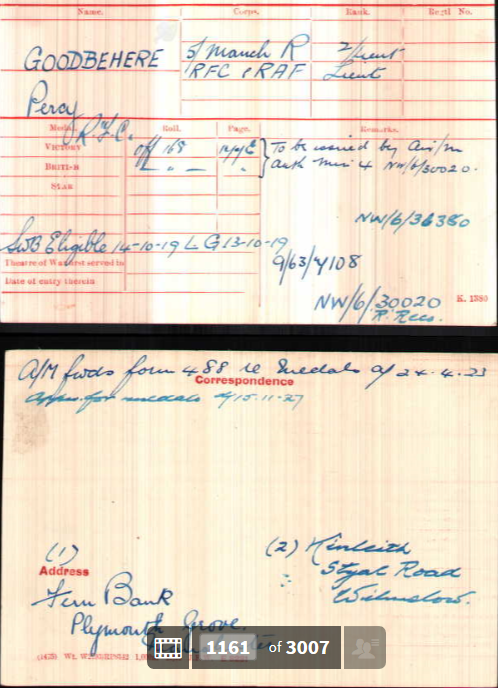 Name.
Corps.
Rank.
Regtl No.
GOODBEHERE
5/ Manch R
2/Lieut
RFC & RAF
Lieut
Percy
R.F.C.
Medal.
Roll.
Page.
Remarks.
VICTORY
off 168
To be issued by Air/m
BRITISH
" - "
auth NW/6/30020.
STAR
NW/6/36380
SWB Eligible 14-10-19 L G 13-10-19
Theatre of War first served in
9/63/4108
Date of entry therein
NW/6/30020
K. 1380
R. Rees.
A/M fwds form 488 re medals d/ 24.4.23
Correspondence
Appn. for medals d/15.11.27
(1)
(2) Kinleith
Address
Styal Road
Fern Bank
Wilmslow.
Plymouth Grove.
1161 of 3007